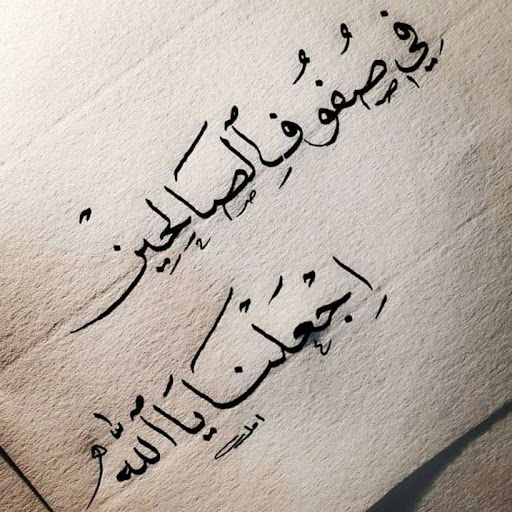 فِي صُفُوفِ ٱلصَالِحِين
اِجْعَلْنَا يَا ٱللّٰه